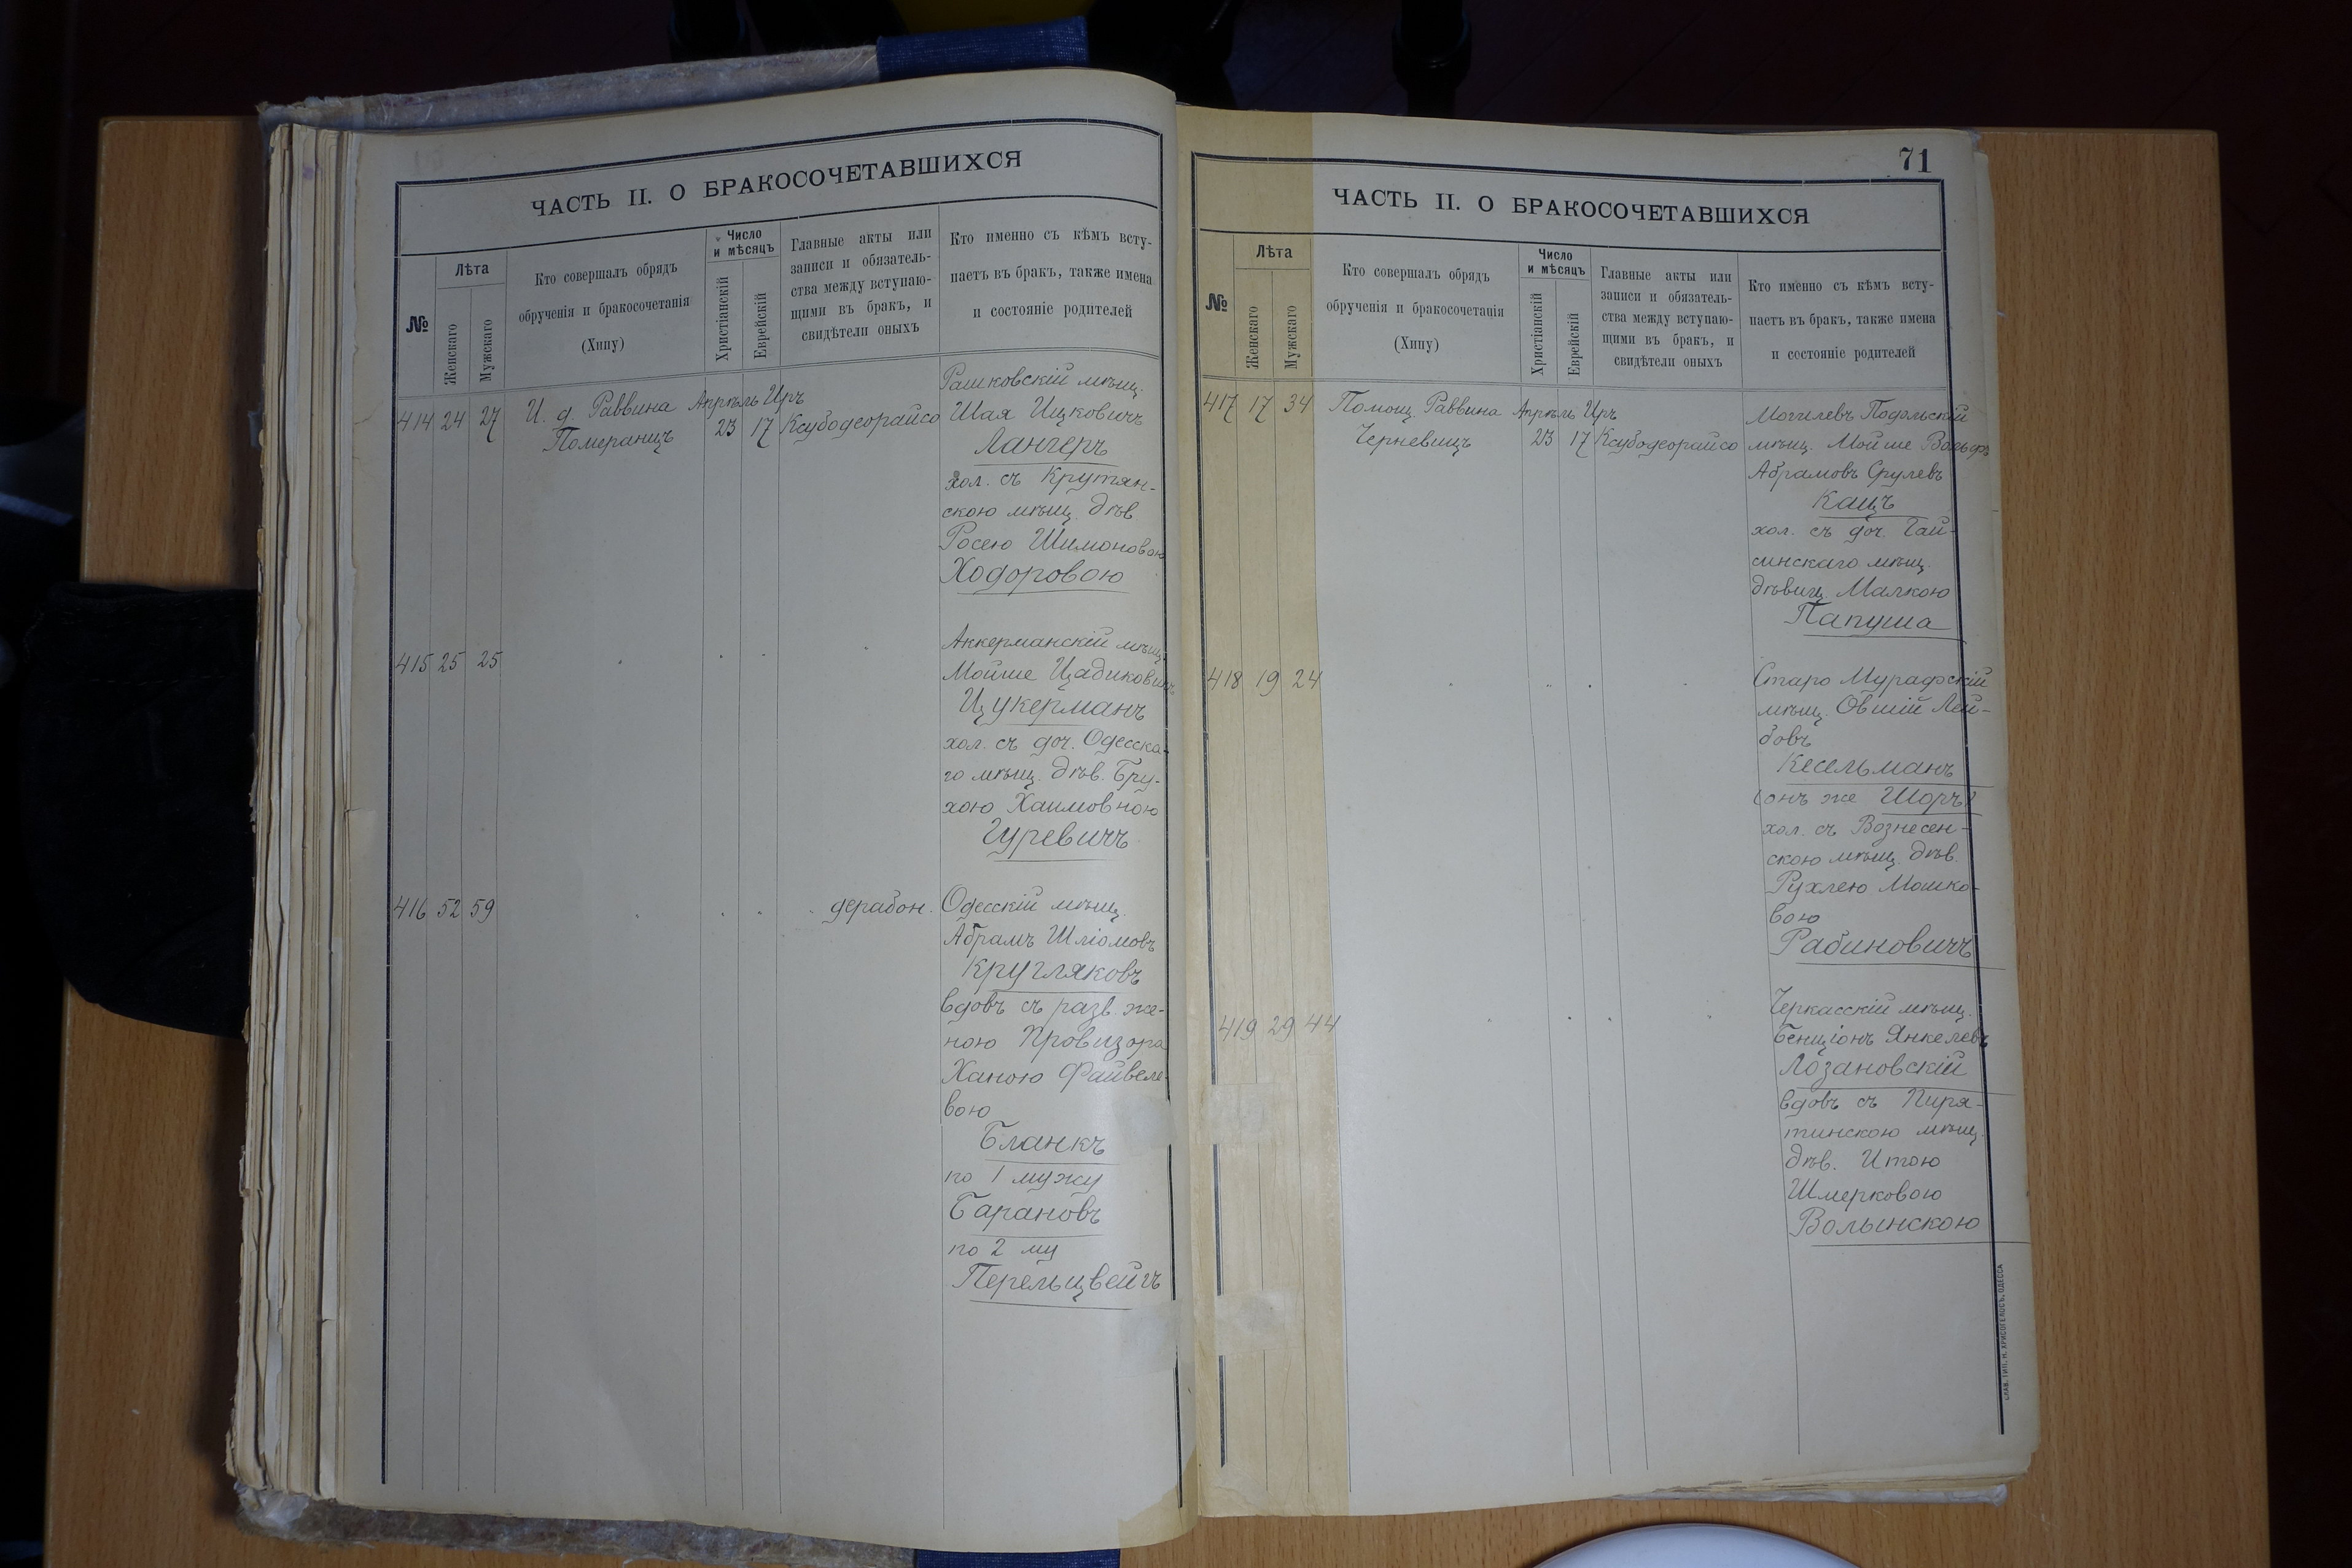 ЧАСТЬ II. О БРАКОСОЧЕТАВШИХСЯ
№
Лѣта
Женскаго
Мужскаго
Кто совершалъ обрядъ
обрученія и бракосочетанія
(Хипу)
Число
и мѣсяцъ
Христіанскій
Еврейскій
Главные акты или
записи и обязатель-
ства между вступаю-
щими въ бракъ, и
свидѣтели оныхъ
Кто именно съ кѣмъ всту-
паетъ въ бракъ, также имена
и состояніе родителей
414 24 27
И. д. Раввина
Померанцъ
Апрѣль Иръ
23 17
Ксубодеорайсо
Рашковскій мѣщ.
Шая Ицковичъ
Лангеръ
хол. съ Крутян-
скою мѣщ. дѣв
Росею Шимоновою
Ходоровою
415 25 25
Аккерманскій мѣщ.
Мойше Цадиковичъ
Цукерманъ
хол. съ доч. Одесска-
го мѣщ. дѣв. Бру-
хою Хаимовною
Гуревичъ
416 52 59
дерабон.
Одесскій мѣщ.
Абрамъ Шліомовъ
Кругляковъ
вдовъ съ разв. же-
ною Провизора
Ханою Файвеле-
вою
Бланкъ
по 1 мужу
Барановъ
по 2 му
Перельцвейгъ
71
ЧАСТЬ II. О БРАКОСОЧЕТАВШИХСЯ
№
Лѣта
Женскаго
Мужскаго
Кто совершалъ обрядъ
обрученія и бракосочетанія
(Хипу)
Число
и мѣсяцъ
Христіанскій
Еврейскій
Главные акты или
записи и обязатель-
ства между вступаю-
щими въ бракъ, и
свидѣтели оныхъ
Кто именно съ кѣмъ всту-
паетъ въ бракъ, также имена
и состояніе родителей
417 17 34
Помощ. Раввина
Черневицъ
Апрѣль Иръ
23 17
Ксубодеорайсо
Могилевъ Подольскій
мѣщ. Мойше Вольфъ
Абрамовъ Срулевъ
Кацъ
хол. съ доч. Гай-
синскаго мѣщ.
дѣвиц. Малкою
Папуша
418 19 24
Старо Мурафскій
мѣщ. Овшій Лей-
бовъ
Кесельманъ
(онъ же Шоръ)
хол. съ Вознесен-
скою мѣщ. дѣв.
Рухлею Мошко-
вою
Рабиновичъ
419 29 44
Черкасскій мѣщ.
Бенціонъ Янкелевъ
Лозановскій
вдовъ съ Пиря-
тинскою мѣщ.
дѣв. Итою
Шмерковою
Волынскою
СЛАВ. ТИП. Н. ХРИСОГЕЛОСЪ, ОДЕССА